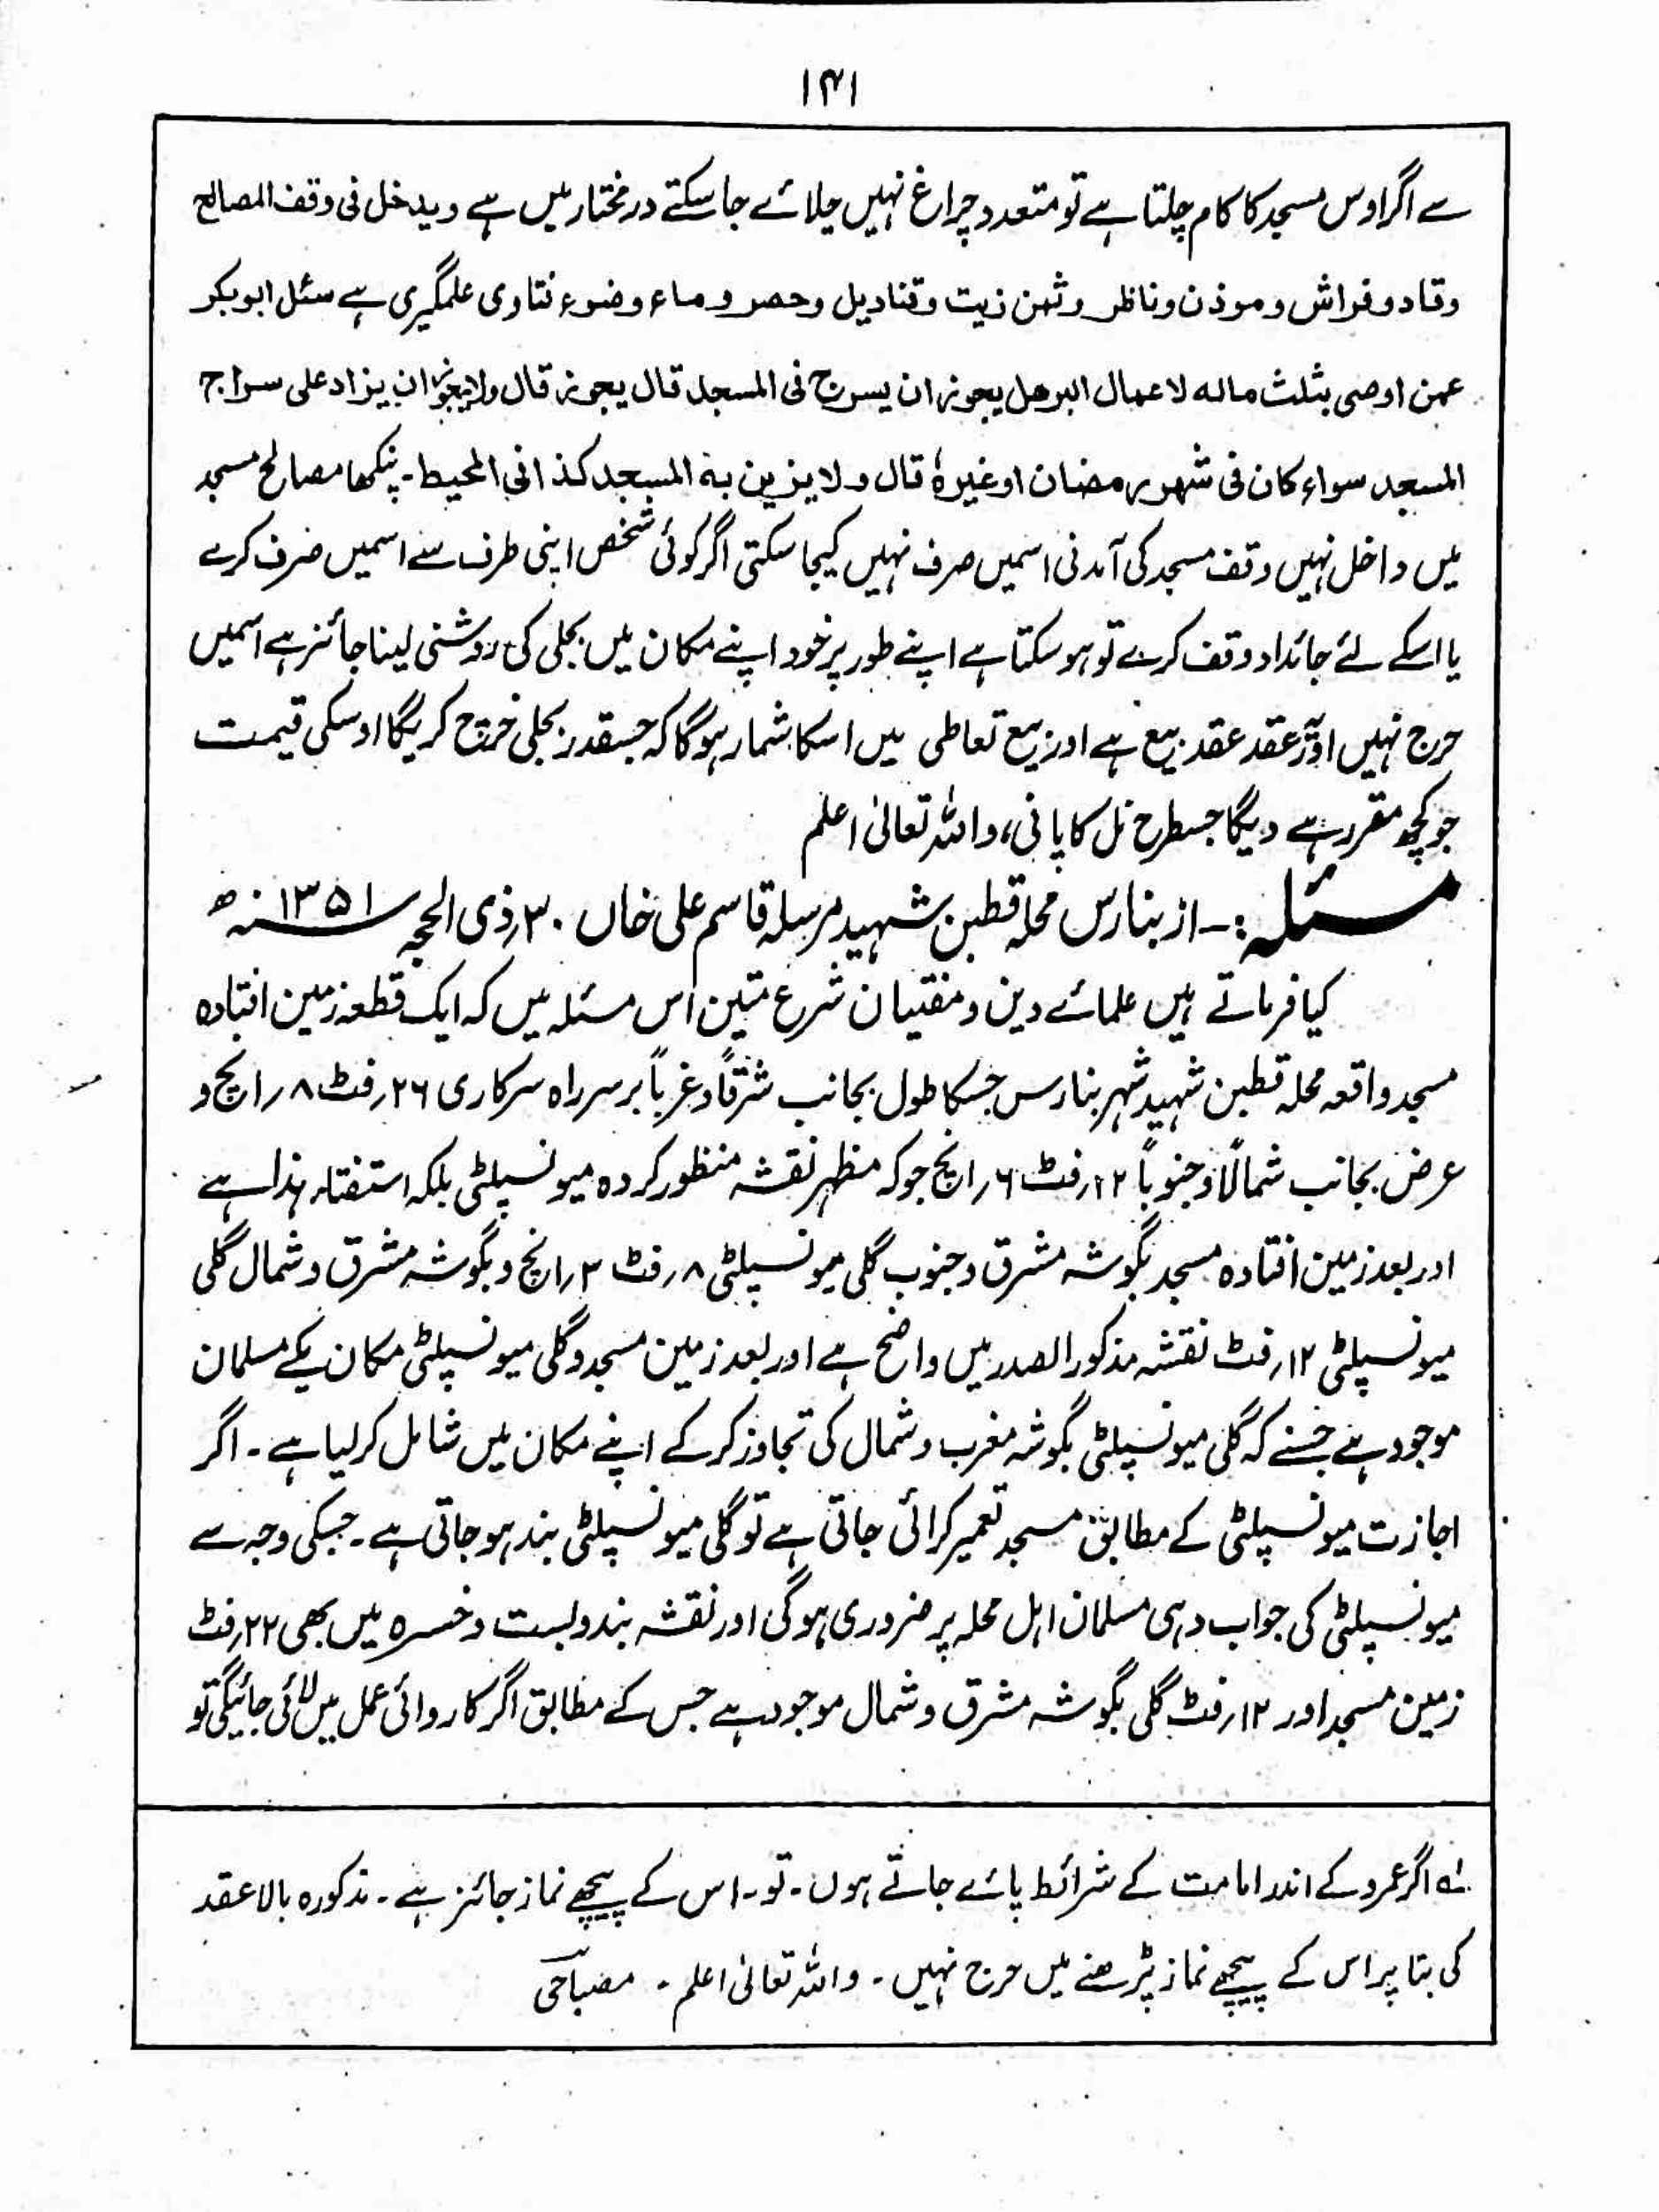 ۱۴۱
سے اگر اوس مسجد کا کام چلتا ہے تو متعدد چراغ نہیں جلائے جا سکتے درمختار میں ہے ویدخل فی وقف المصالح
وقاد وفراش وموذن وناظر وثمن زیت وقنادیل وحصر وماء وضوء فتاوی علمگیری ہے سئل ابوبکر
عمن اوصی بثلث مالہ لاعمال البر ھل یجوز ان یسرج فی المسجد قال یجوز قال ولایجوز ان یزاد علی سراج
المسجد سواء کان فی شھر رمضان او غیرہ قال ولا یزین بہ المسجد کذا فی المحیط۔ پنکھا مصالح مسجد
میں داخل نہیں وقف مسجد کی آمدنی اسمیں صرف نہیں کیجا سکتی اگر کوئی شخص اپنی طرف سے اسمیں صرف کرے
یا اسکے لئے جائداد وقف کرے تو ہو سکتا ہے اپنے طور پر خود اپنے مکان میں بجلی کی روشنی لینا جائز ہے اسمیں
حرج نہیں اور عقد عقد بیع ہے اور بیع تعاطی میں اسکا شمار ہوگا کہ جسقدر بجلی خرچ کریگا اوسکی قیمت
جو کچھ مقرر ہے دیگا جسطرح نل کا پانی، واللہ تعالیٰ اعلم
مسئلہ:۔ از بنارس محلہ قطبن شہید مرسلہ قاسم علی خاں ۳۰؍ذی الحجہ ۱۳۵۱ سنہ ھ
کیا فرماتے ہیں علمائے دین ومفتیان شرع متین اس مسئلہ میں کہ ایک قطعہ زمین افتادہ
مسجد واقعہ محلہ قطبن شہید شہر بنارس جسکا طول بجانب شرقاً وغرباً برسرراہ سرکاری ۲۶؍فٹ ۸؍انچ و
عرض بجانب شمالاً وجنوباً ۱۲؍فٹ ۶؍انچ جو کہ مظہر نقشہ منظور کردہ میونسپلٹی بلکہ استفتاء ہذا ہے
اور بعد زمین افتادہ مسجد بگوشہ مشرق وجنوب گلی میونسپلٹی ۸؍فٹ ۳؍انچ و بگوشہ مشرق وشمال گلی
میونسپلٹی ۱۲؍فٹ نقشہ مذکور الصدر میں واضح ہے اور بعد زمین مسجد و گلی میونسپلٹی مکان یکے مسلمان
موجود ہے جسنے کہ گلی میونسپلٹی بگوشہ مغرب وشمال کی تجاوز کرکے اپنے مکان میں شامل کرلیا ہے۔ اگر
اجازت میونسپلٹی کے مطابق مسجد تعمیر کرائی جاتی ہے تو گلی میونسپلٹی بند ہو جاتی ہے۔ جسکی وجہ سے
میونسپلٹی کی جواب دہی مسلمان اہل محلہ پر ضروری ہوگی اور نقشہ بندوبست وخسرہ میں بھی ۲۲؍فٹ
زمین مسجد اور ۱۲؍فٹ گلی بگوشہ مشرق وشمال موجود ہے جس کے مطابق اگر کاروائی عمل میں لائی جائیگی تو
اگر عمرو کے اندر امامت کے شرائط پائے جاتے ہوں۔ تو۔ اس کے پیچھے نماز جائز ہے۔ مذکورہ بالا عقد
کی بنا پر اس کے پیچھے نماز پڑھنے میں حرج نہیں۔ واللہ تعالیٰ اعلم۔ مصباحی